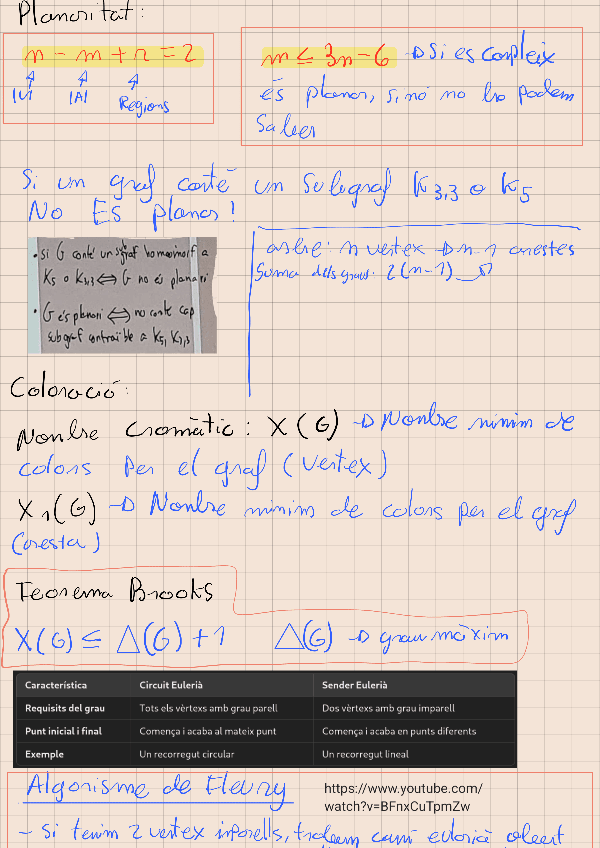 Planaritat:
n - m + r = 2
|V| |A| Regions
m ≤ 3n - 6 → Si es compleix
és planar, si no no ho podem
saber
Si un graf conté un subgraf K3,3 o K5
NO ES planar!
• Si G conté un sgraf homeomorf a
K5 o K3,3 ⇔ G no és planari
• G és planari ⇔ no conté cap
subgraf contraïble a K5, K3,3
arbre: n vertex → n-1 arestes
Suma dels graus: 2(n-1)
Coloració:
Nombre cromàtic: X(G) → Nombre minim de
colors per el graf (vertex)
X1(G) → Nombre minim de colors per el graf
(aresta)
Teorema Brooks
X(G) ≤ Δ(G) + 1 Δ(G) → grau màxim
Característica Circuit Eulerià Sender Eulerià
Requisits del grau Tots els vèrtexs amb grau parell Dos vèrtexs amb grau imparell
Punt inicial i final Comença i acaba al mateix punt Comença i acaba en punts diferents
Exemple Un recorregut circular Un recorregut lineal
Algorisme de Fleury
https://www.youtube.com/
watch?v=BFnxCuTpmZw
- Si tenim 2 vertex inparells, trobem camí eulorià obert